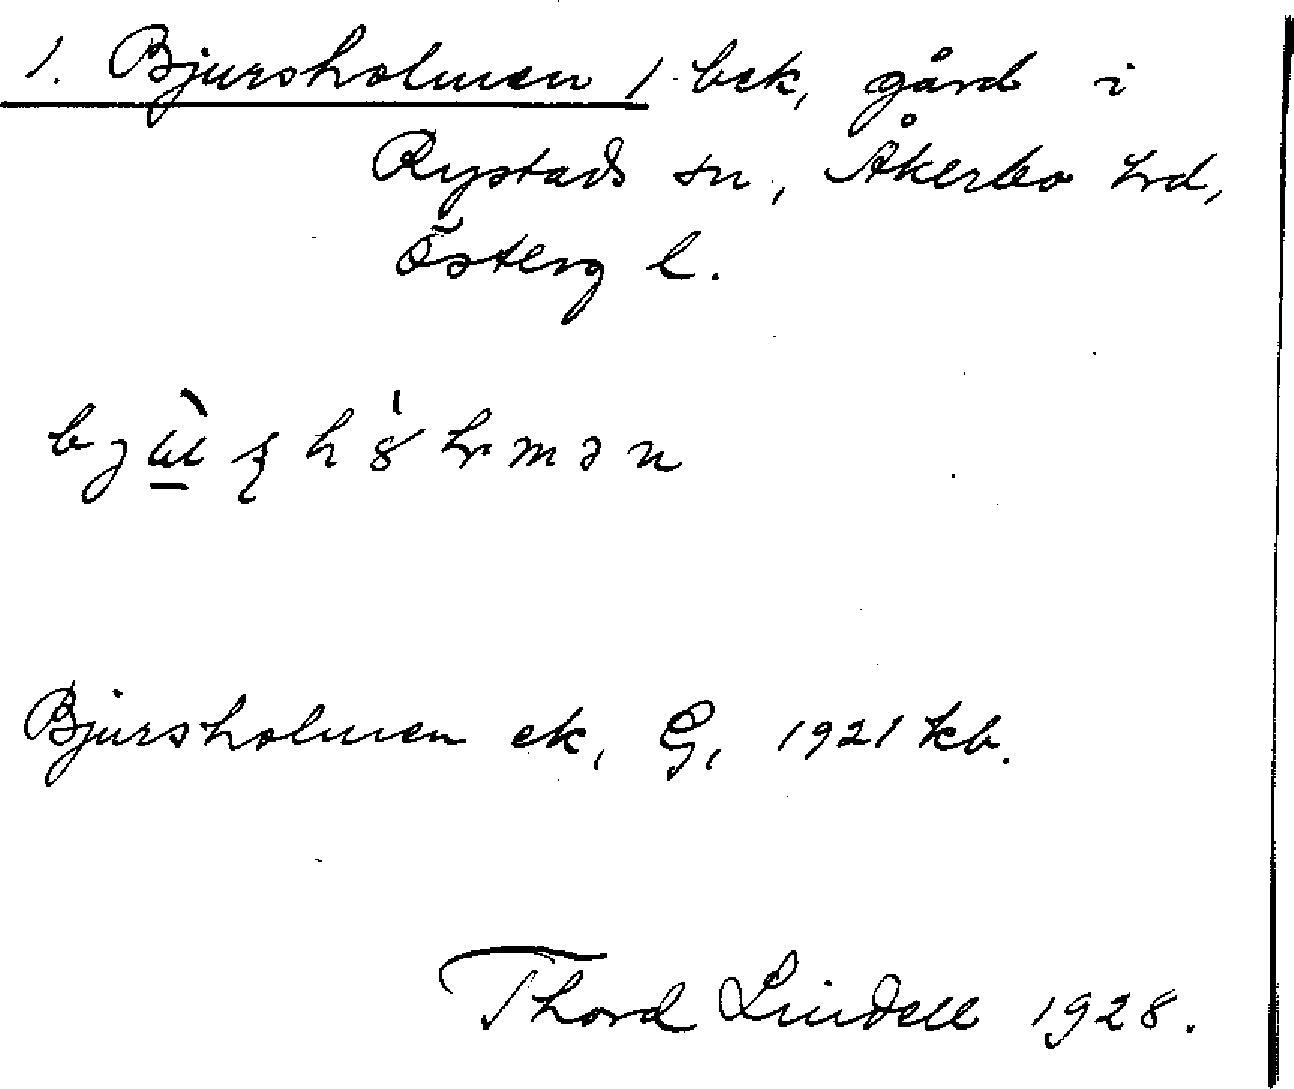 1. Bjursholmen 1 bek, gård i
Rystads sn, Åkerbo hrd,
Österg l.
Bjursholmen ek, G, 1921 kb.
Thord Lindell 1928.